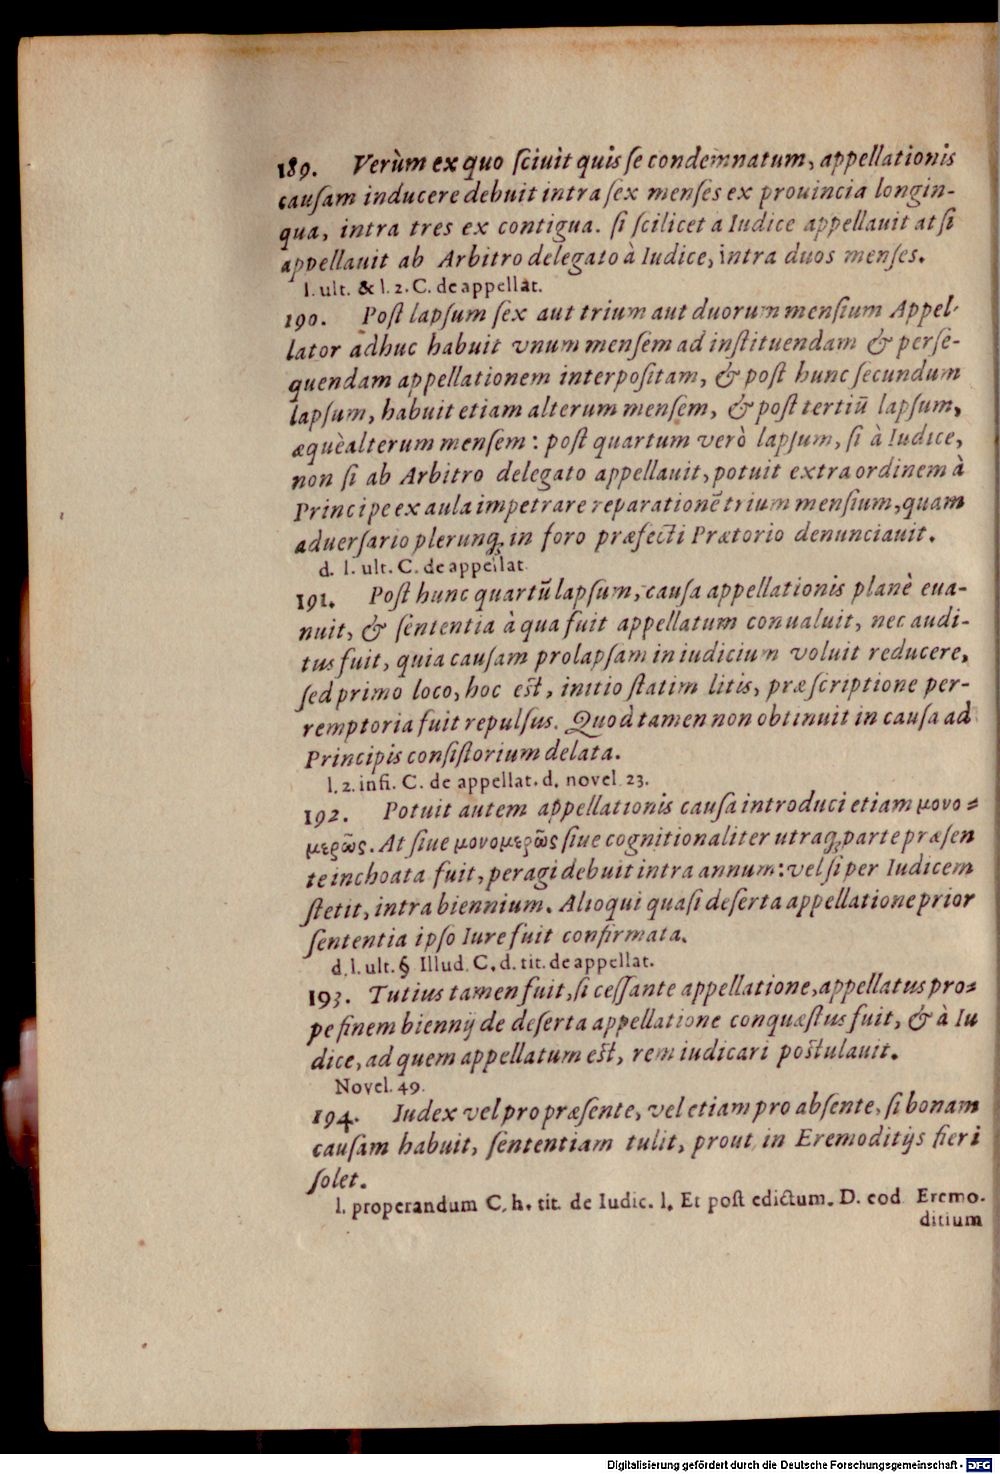 189. Verùm ex quo ſciuit quis ſe condemnatum, appellationis
cauſam inducere debuit intra ſex menſes ex prouincia longin-
qua, intra tres ex contigua. ſi ſcilicet a Iudice appellauit at ſi
appellauit ab Arbitro delegato à Iudice, intra duos menſes.
l. ult. & l. 2. C. de appellat.
190. Poſt lapſum ſex aut trium aut duorum menſium Appel-
lator adhuc habuit vnum menſem ad inſtituendam & perſe-
quendam appellationem interpoſitam, & poſt hunc ſecundum
lapſum, habuit etiam alterum menſem, & poſt tertiū lapſum,
æquè alterum menſem: poſt quartum verò lapſum, ſi à Iudice,
non ſi ab Arbitro delegato appellauit, potuit extra ordinem à
Principe ex aula impetrare reparationē trium menſium, quam
aduerſario plerunq; in foro præfecti Prætorio denunciauit.
d. l. ult. C. de appellat.
191. Poſt hunc quartū lapſum, cauſa appellationis planè eua-
nuit, & ſententia à qua fuit appellatum conualuit, nec audi-
tus fuit, quia cauſam prolapſam in iudicium voluit reducere,
ſed primo loco, hoc eſt, initio ſtatim litis, præſcriptione per-
remptoria fuit repulſus. Quod tamen non obtinuit in cauſa ad
Principis conſiſtorium delata.
l. 2. infi. C. de appellat. d. novel. 23.
192. Potuit autem appellationis cauſa introduci etiam μονο=
μερῶς. At ſiue μονομερῶς ſiue cognitionaliter utraq; parte præſen
te inchoata fuit, peragi debuit intra annum: vel ſi per Iudicem
ſtetit, intra biennium. Alioqui quaſi deſerta appellatione prior
ſententia ipſo Iure fuit confirmata.
d. l. ult. § Illud. C. d. tit. de appellat.
193. Tutius tamen fuit, ſi ceſſante appellatione, appellatus pro=
pe finem biennij de deſerta appellatione conquæſtus fuit, & à Iu
dice, ad quem appellatum eſt, rem iudicari poſtulauit.
Novel. 49.
194. Iudex vel pro præſente, vel etiam pro abſente, ſi bonam
cauſam habuit, ſententiam tulit, prout in Eremoditijs fieri
ſolet.
l. properandum C. h. tit. de Iudic. l. Et poſt edictum. D. eod Eremo-
ditium
Digitalisierung gefördert durch die Deutsche Forschungsgemeinschaft - DFG